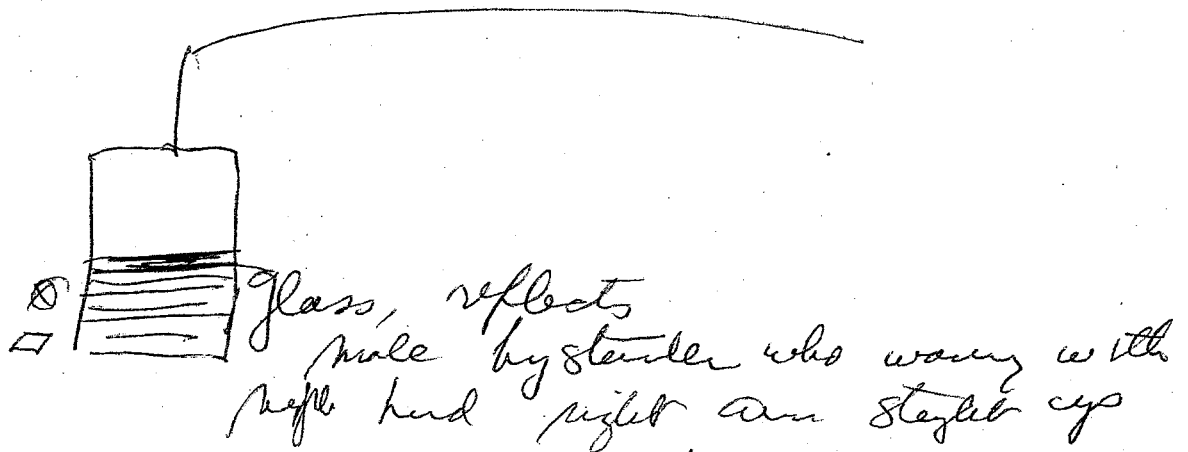 glass, reflects
male bystander who waving with
right hand right arm straight up